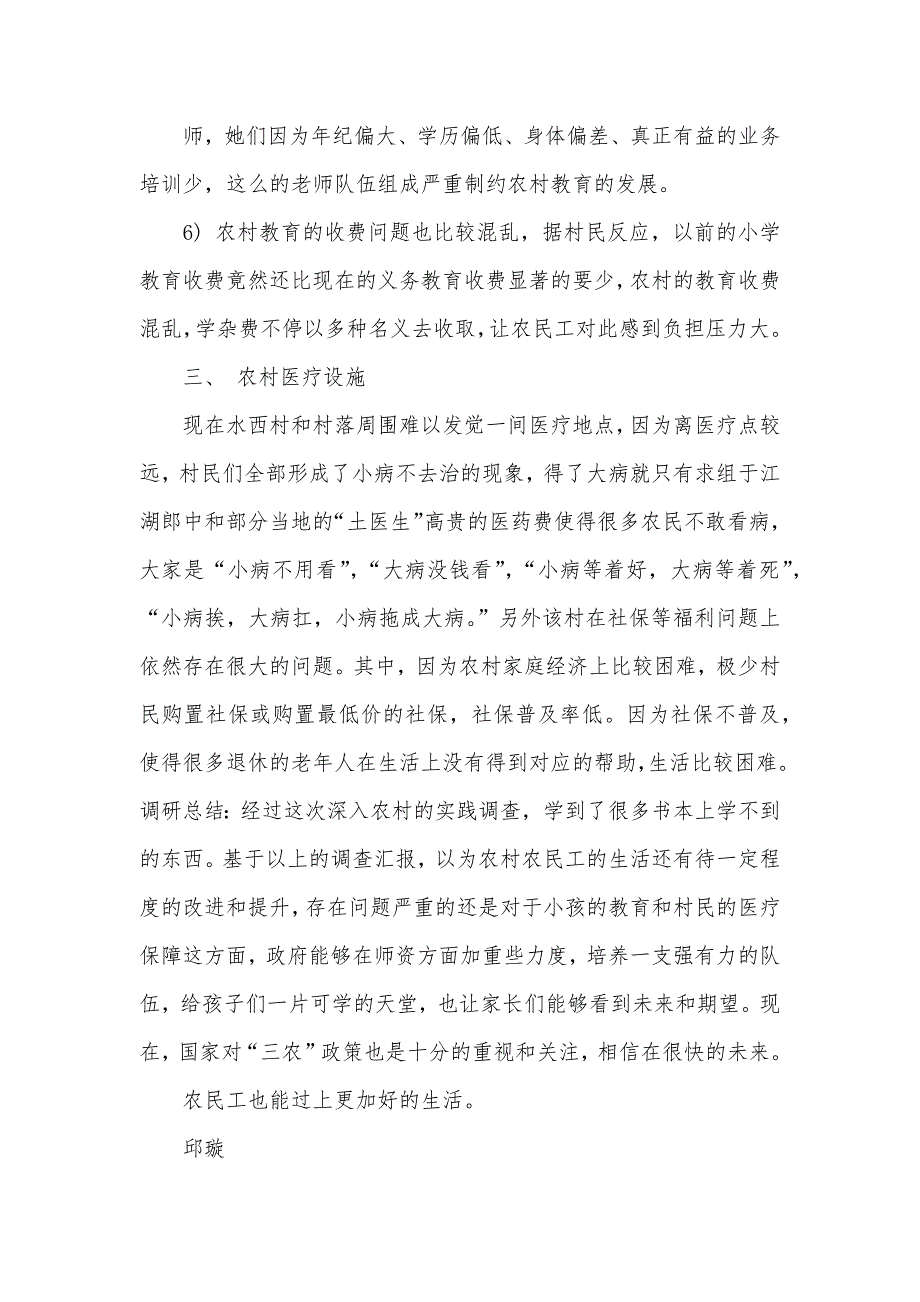 师，她们因为年纪偏大、学历偏低、身体偏差、真正有益的业务
培训少，这么的老师队伍组成严重制约农村教育的发展。
6) 农村教育的收费问题也比较混乱，据村民反应，以前的小学
教育收费竟然还比现在的义务教育收费显著的要少，农村的教育收费
混乱，学杂费不停以多种名义去收取，让农民工对此感到负担压力大。
三、 农村医疗设施
现在水西村和村落周围难以发觉一间医疗地点，因为离医疗点较
远，村民们全部形成了小病不去治的现象，得了大病就只有求组于江
湖郎中和部分当地的“土医生”高贵的医药费使得很多农民不敢看病，
大家是“小病不用看”，“大病没钱看”，“小病等着好，大病等着死”，
“小病挨，大病扛，小病拖成大病。”另外该村在社保等福利问题上
依然存在很大的问题。其中，因为农村家庭经济上比较困难，极少村
民购置社保或购置最低价的社保，社保普及率低。因为社保不普及，
使得很多退休的老年人在生活上没有得到对应的帮助，生活比较困难。
调研总结：经过这次深入农村的实践调查，学到了很多书本上学不到
的东西。基于以上的调查汇报，以为农村农民工的生活还有待一定程
度的改进和提升，存在问题严重的还是对于小孩的教育和村民的医疗
保障这方面，政府能够在师资方面加重些力度，培养一支强有力的队
伍，给孩子们一片可学的天堂，也让家长们能够看到未来和期望。现
在，国家对“三农”政策也是十分的重视和关注，相信在很快的未来。
农民工也能过上更加好的生活。
邱璇